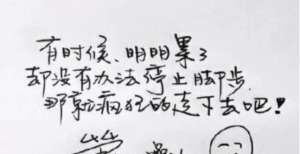 有时候、明明累了
却没有办法停止脚步
那就疯狂的走下去吧!